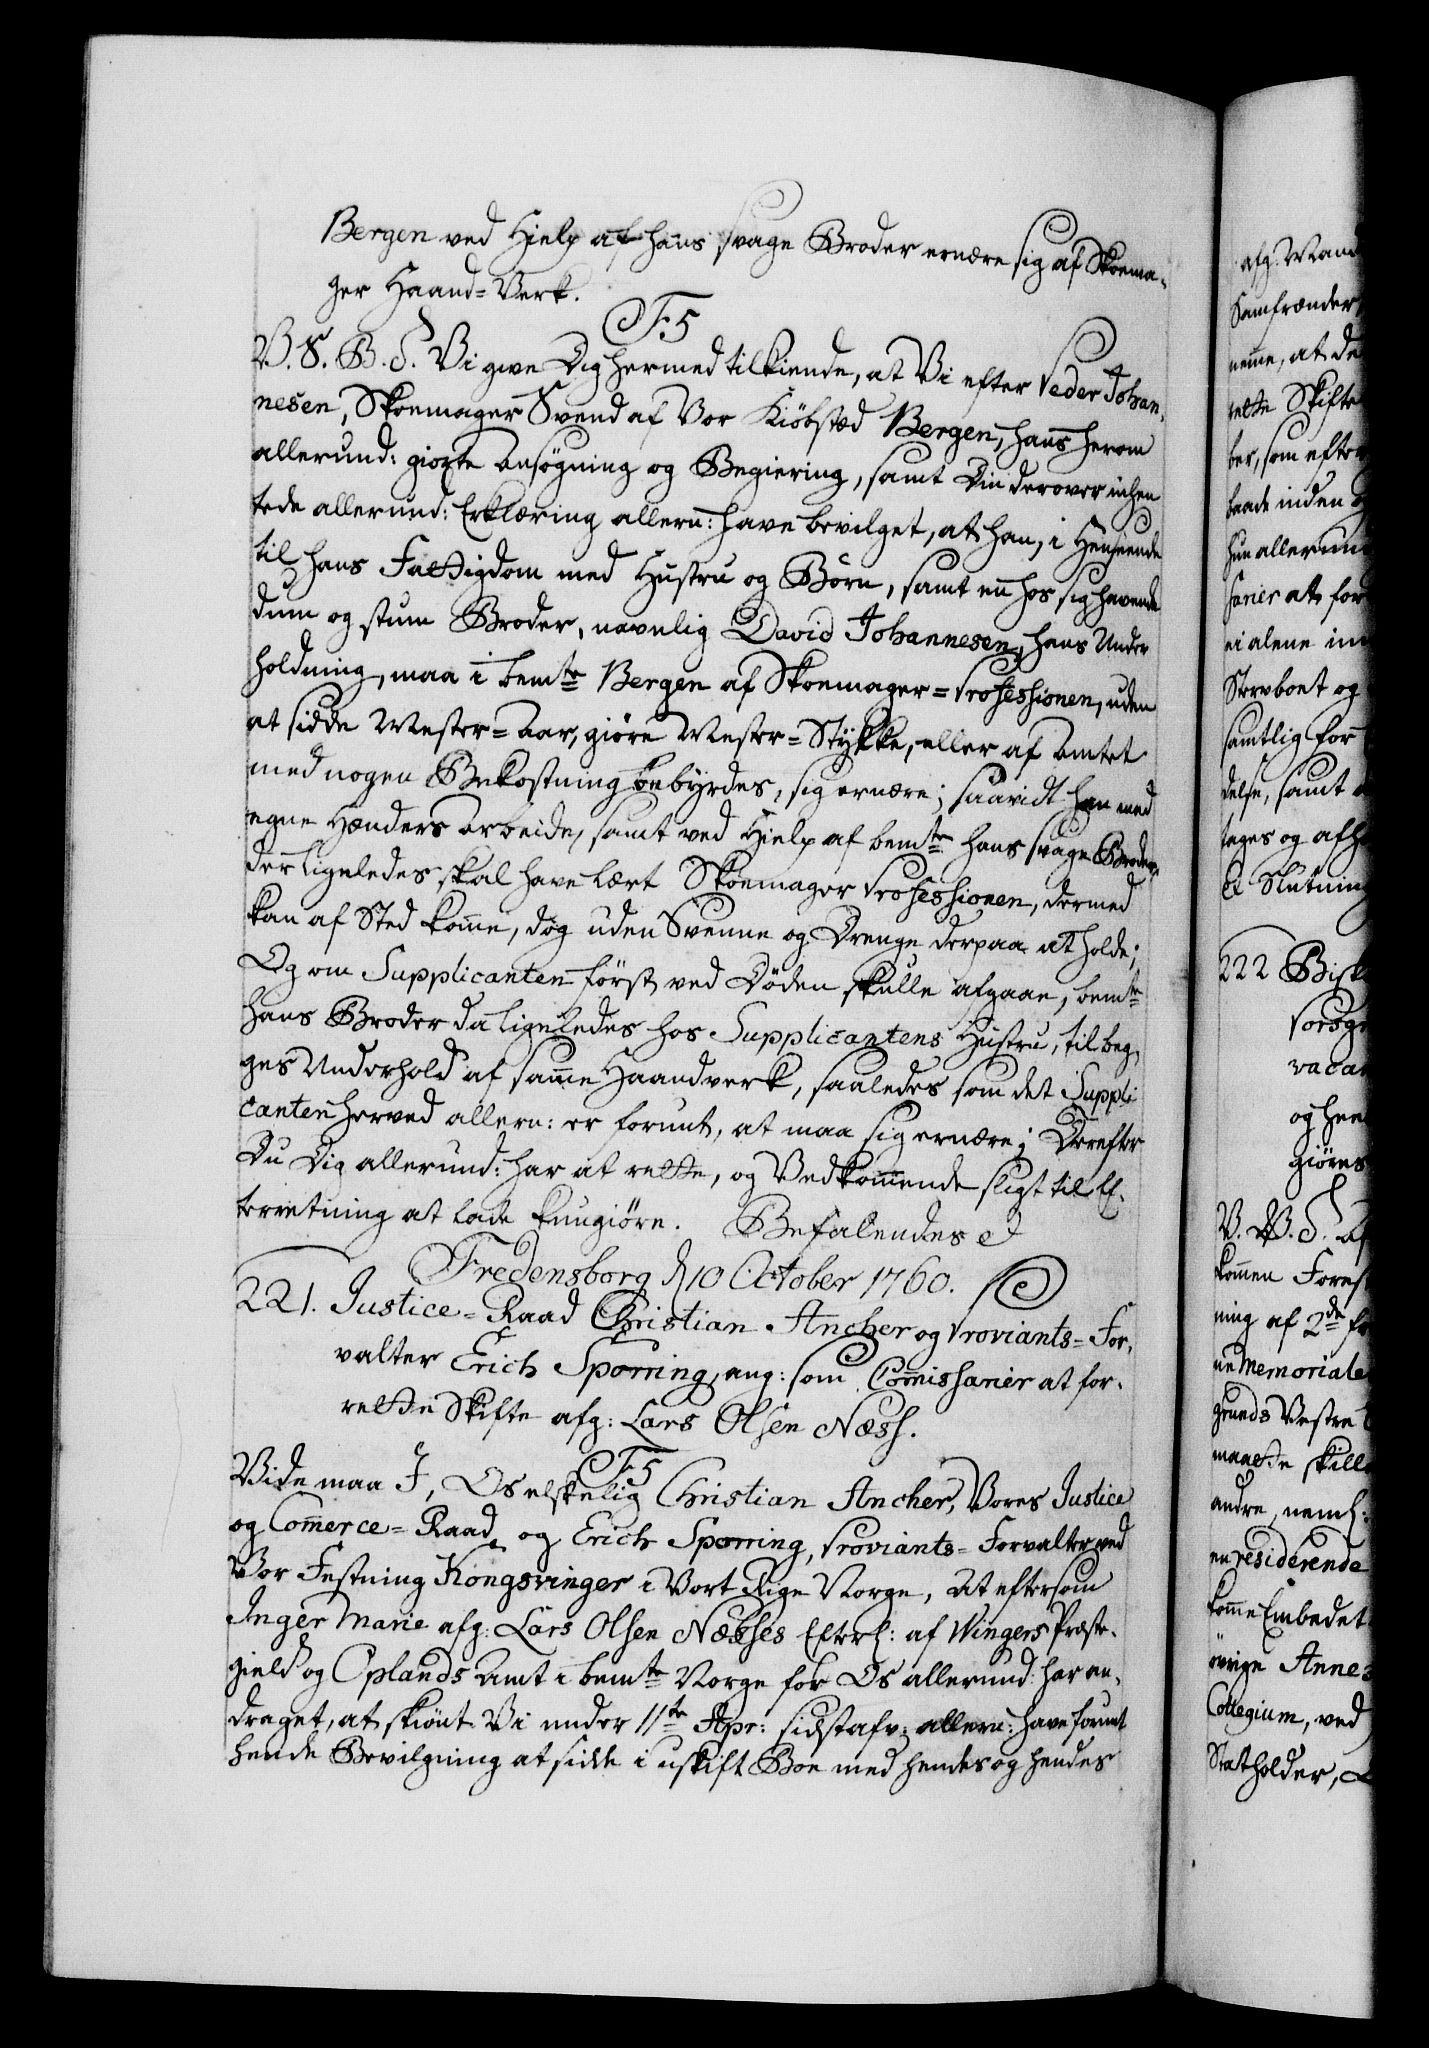 Bergen ved Hielp af hans svage Broder ernære sig af Skoema-
ger Haand-Verk.
F5
V. S. B. S. Vi give Dig hermed tilkiende, at Vi efter Peder Johan-
nesen, Skoemager Svend af Vor Kiöbstæd Bergen, hans herom
allerund: giorte Ansøgning og Begiering, samt Din derover inhen
tede allerund: Erklæring allern: have bevilget, at han, i Henseende
til hans Fattigdom med Hustru og Börn, samt en hos sig havende
dum og stum Broder, navnlig David Johannesen, hans Under
holdning, maa i bemte Bergen af Skoemager-Professionen, uden
at sidde Mester-Aar, giøre Mester-Stykke, eller af Amtet
med nogen Bekostning bebyrdes, sig ernære; saavidt han med
egne Hænders Arbeide, samt ved Hielp af bemte hans svage Broder,
der ligeledes skal have lært Skoemager Professionen, dermed
kan af Sted komme, dog uden Svenne og Drenge derpaa at holde;
Og om Supplicanten först ved Döden skulle afgaae, bemte
hans Broder da ligeledes hos Supplicantens Hustru, til beg-
ges Underhold af samme Haandverk, saaledes som det Suppli
canten herved allern: er forunt, at maa sig ernære; Derefter
Du Dig allerund: har at rette, og Vedkommende sligt til Ef-
terretning at lade kungiöre. Befalendes
Fredensborg d 10 October 1760.
221. Justice-Raad Christian Ancher og Proviants-For-
valter Erich Sporring, ang: som Commissarier at for-
rette Skifte afg: Lars Olsen Næss.
F5
Vide maa I, Os elskelig Christian Ancher, Vores Justice
og Commerce-Raad, og Erich Sporring, Proviants-Forvalter ved
Vor Festning Kongsvinger i Vort Rige Norge, At eftersom
Inger Marie afg: Lars Olsen Næsses Efterl: af Wingers Præste-
gield og Oplands Amt i bemte Norge for Os allerund: har an-
draget, at skiönt Vi under 11te Apr: sidstafv: allern: have forunt
hende Bevilgning at sidde i uskift Boe med hendes og hendes
afg: Mand
Samfrænder
nemme, at de
rette Skifte
ber, som efter
baade inden
hun allerun
sarier at for
ei alene in
Stervboet og
samtlig for
delse, samt
tages og afh
Slutning
222 Bisk
vacan
og hen
giøres
V. V. S.
kommen Fores
ning af 2de
ne Memoriale
grunds Vestre
maatte skill
andre, neml:
en residerende
komme Embedet
övrige Annex
Collegium, ved
Statholder,